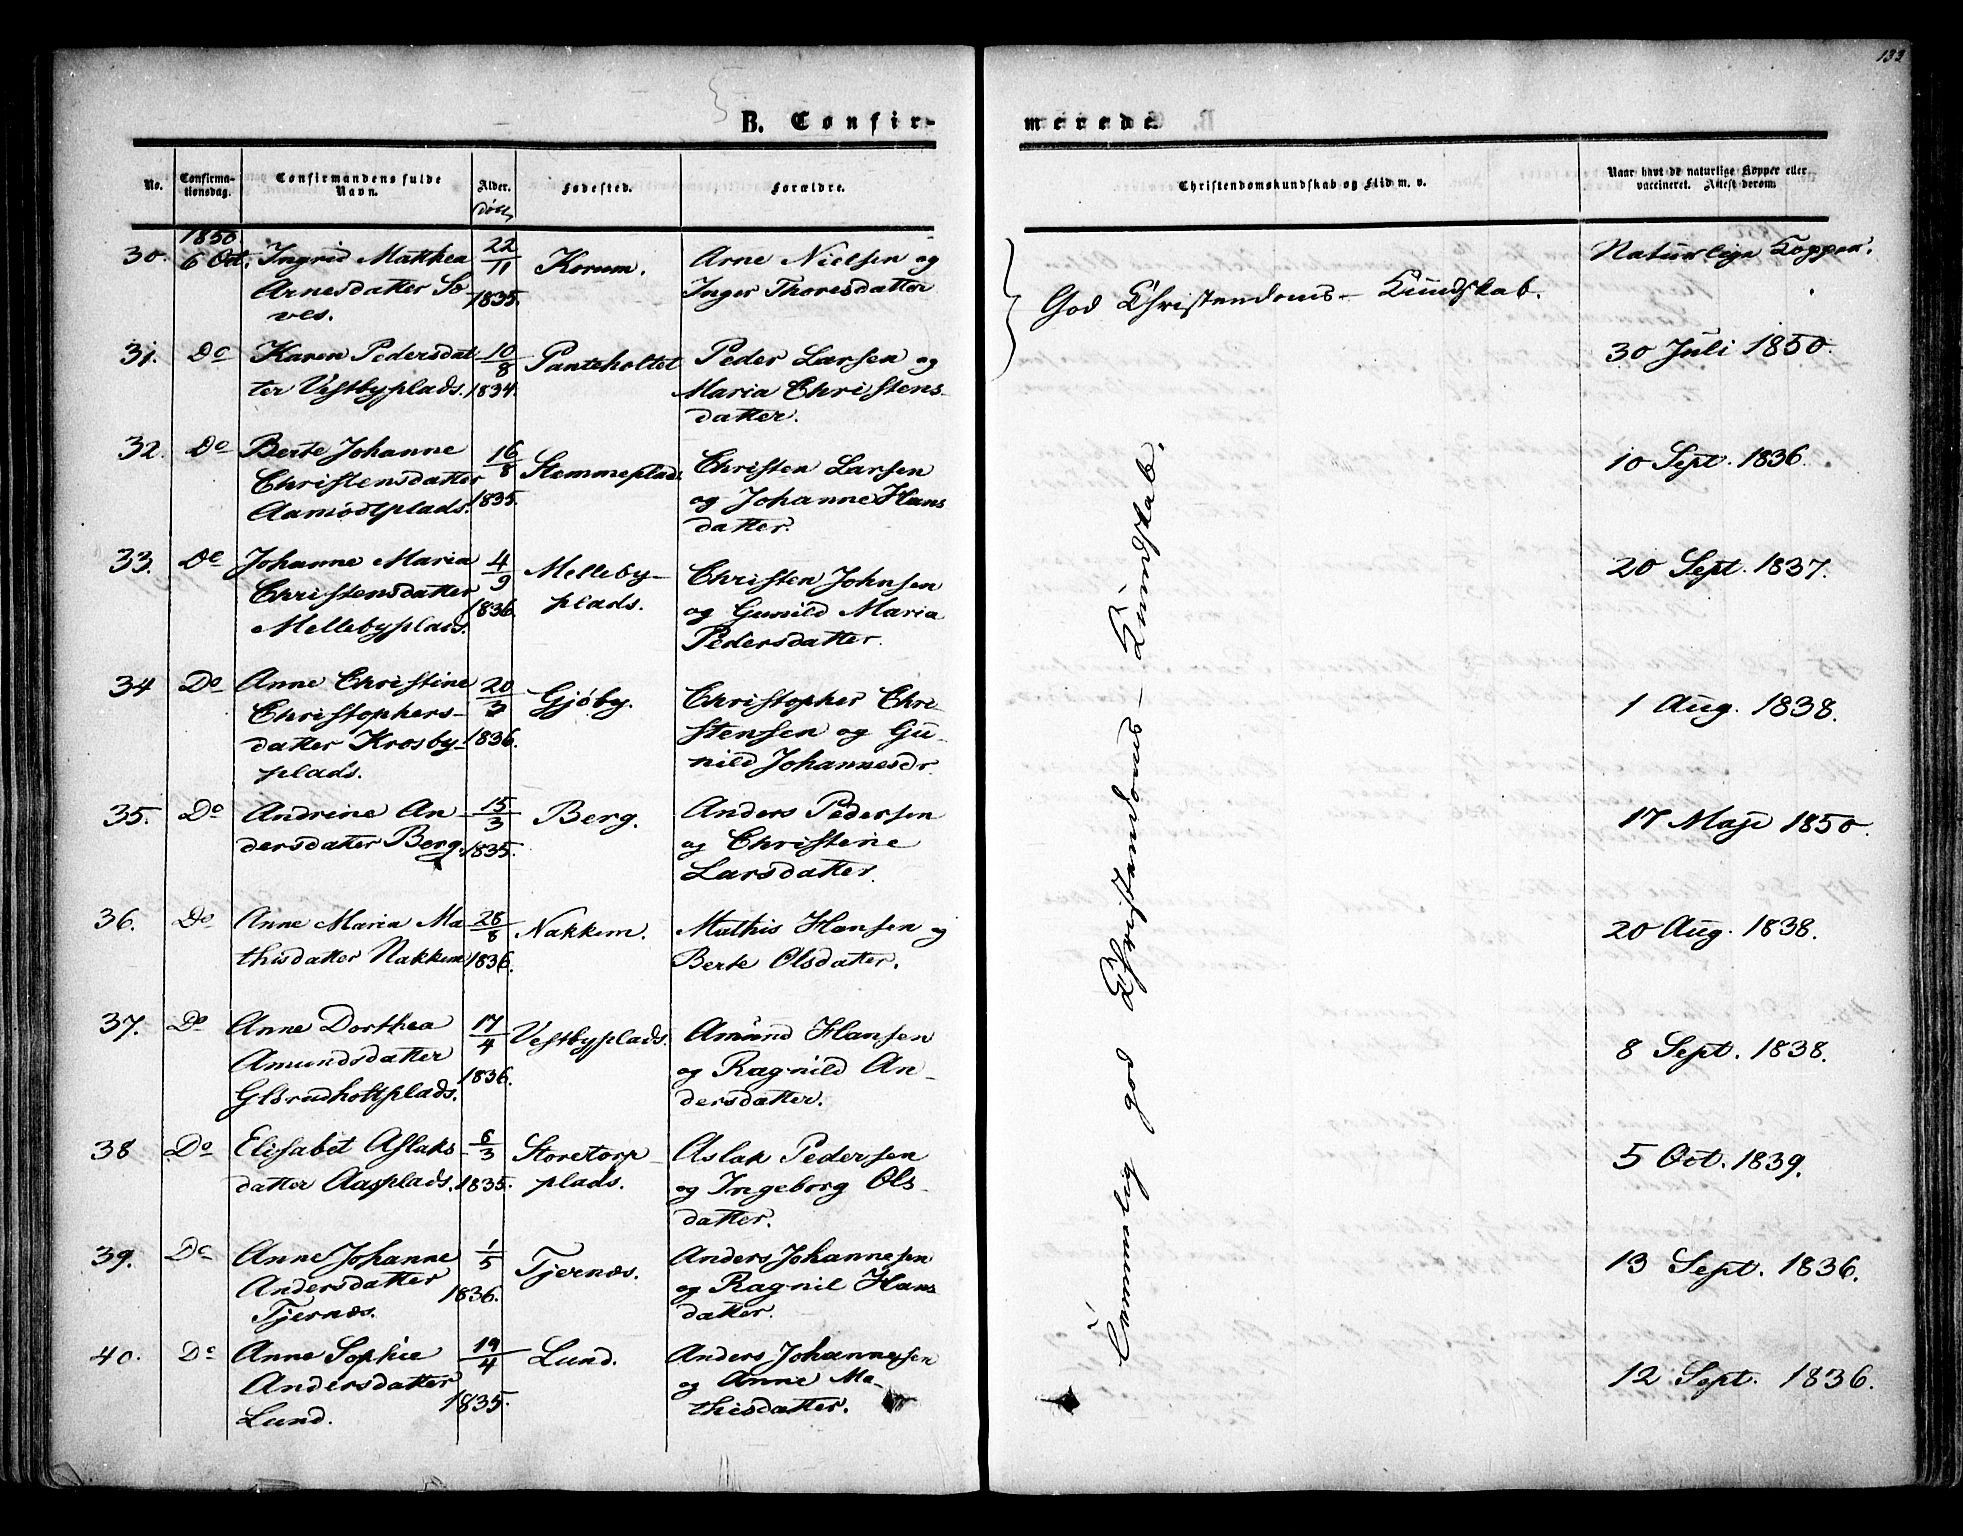 133
B. Confirmerede.
No.
Confirmationsdag.
Confirmandens fulde Navn.
Alder.
født
Fødested.
Forældre.
Christendomskundskab og Flid m. v.
Naar havt de naturlige Kopper eller vaccineret. Attest derom.
1850
30. 6 Oct. Ingrid Mathea 22/11 Korum. Arne Nielsen og Naturlige Kopper.
Arnesdatter So 1835. Inger Thoresdatter God Christendoms-Kundskab.
ves.
31. Do Karen Pedersdat 10/8 Panteholtet Peder Larsen og 30 Juli 1850.
ter Vestbyplads. 1834. Maria Christens
datter.
32. Do Berte Johanne 16/8 Stemmeplads Christen Larsen 10 Sept. 1836.
Christensdatter 1835. og Johanne Hans
Aamodtplads. datter.
33. Do Johanne Maria 4/9 Melleby- Christen Johnsen 20 Sept. 1837.
Christensdatter 1836. plads. og Gunild Maria
Mellebyplads. Pedersdatter.
34 Do Anne Christine 20/3 Gjøby. Christopher Chri- 1 Aug. 1838.
Christophers- 1836. stensen og Gu-
datter Krosby- nild Johannesdr.
plads.
35. Do Andrine An 15/3 Berg. Anders Pedersen 17 Maji 1850.
dersdatter Berg. 1835. og Christine
Larsdatter.
36. Do Anne Maria Ma 28/8 Nakkem. Mathis Hansen og 20 Aug. 1838.
thisdatter Nakkem 1836. Berte Olsdatter.
37. Do Anne Dorthea 17/4 Vestbyplads. Amund Hansen 8 Sept. 1838.
Amundsdatter 1836. og Ragnild An-
Glsrudholtplads. dersdatter.
38 Do Elisabet Aslaks 6/3 Storetorp- Aslak Pedersen 5 Oct. 1839.
datter Aasplads. 1835. plads. og Ingeborg Ols-
datter.
39. Do Anne Johanne 1/5 Tjernæs. Anders Johannesen 13 Sept. 1836.
Andersdatter 1836. og Ragnil Hans
Tjernæs. datter.
40. Do Anne Sophie 19/4 Lund. Anders Johannesen 12 Sept. 1836.
Andersdatter 1835. og Anne Ma-
Lund. thisdatter.
Temmelig god Christendoms-Kundskab.